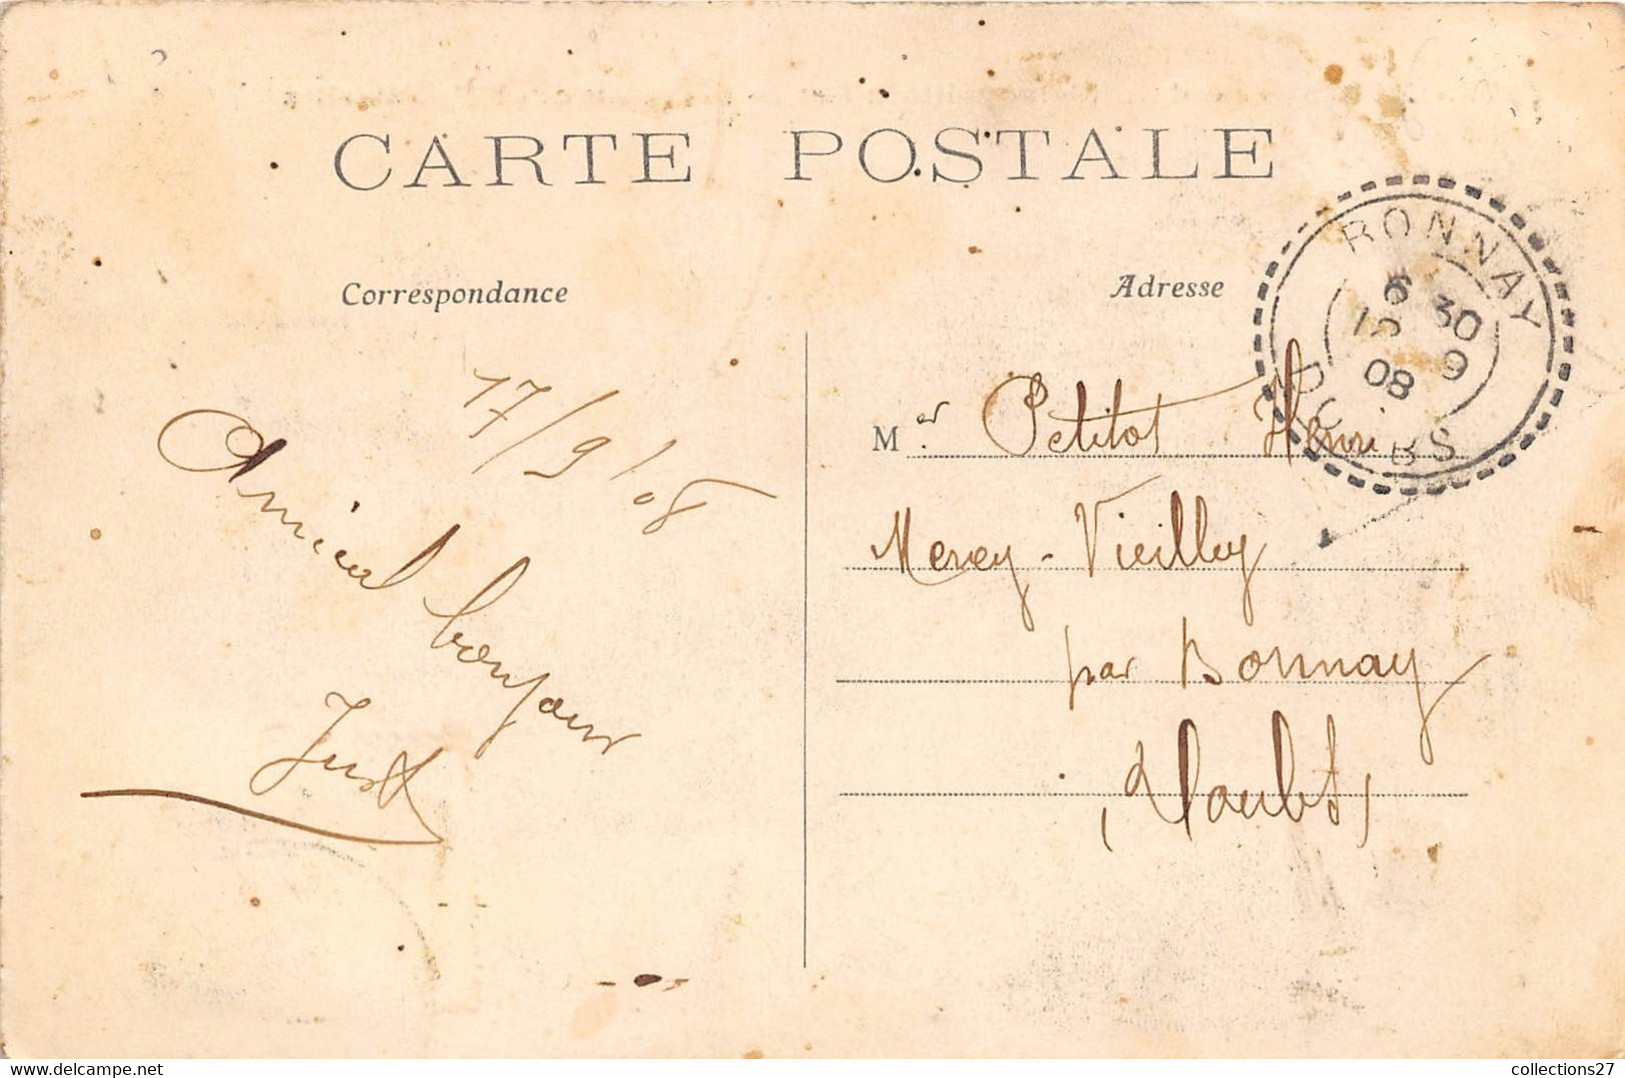 CARTE POSTALE
Correspondance
17/9/08
Amical bonjour
Just
Adresse
Mer Petitot Henri
Merey-Vieilley
par Bonnay
(Doubs)
BONNAY
6 30
9
08
DOUBS
collections27